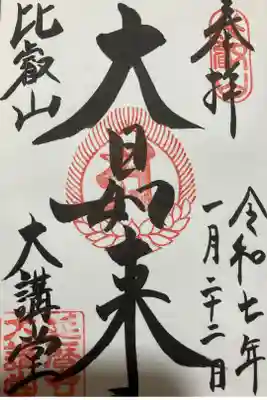 奉拝
令和七年
一月二十二日
大日如来
比叡山
大講堂